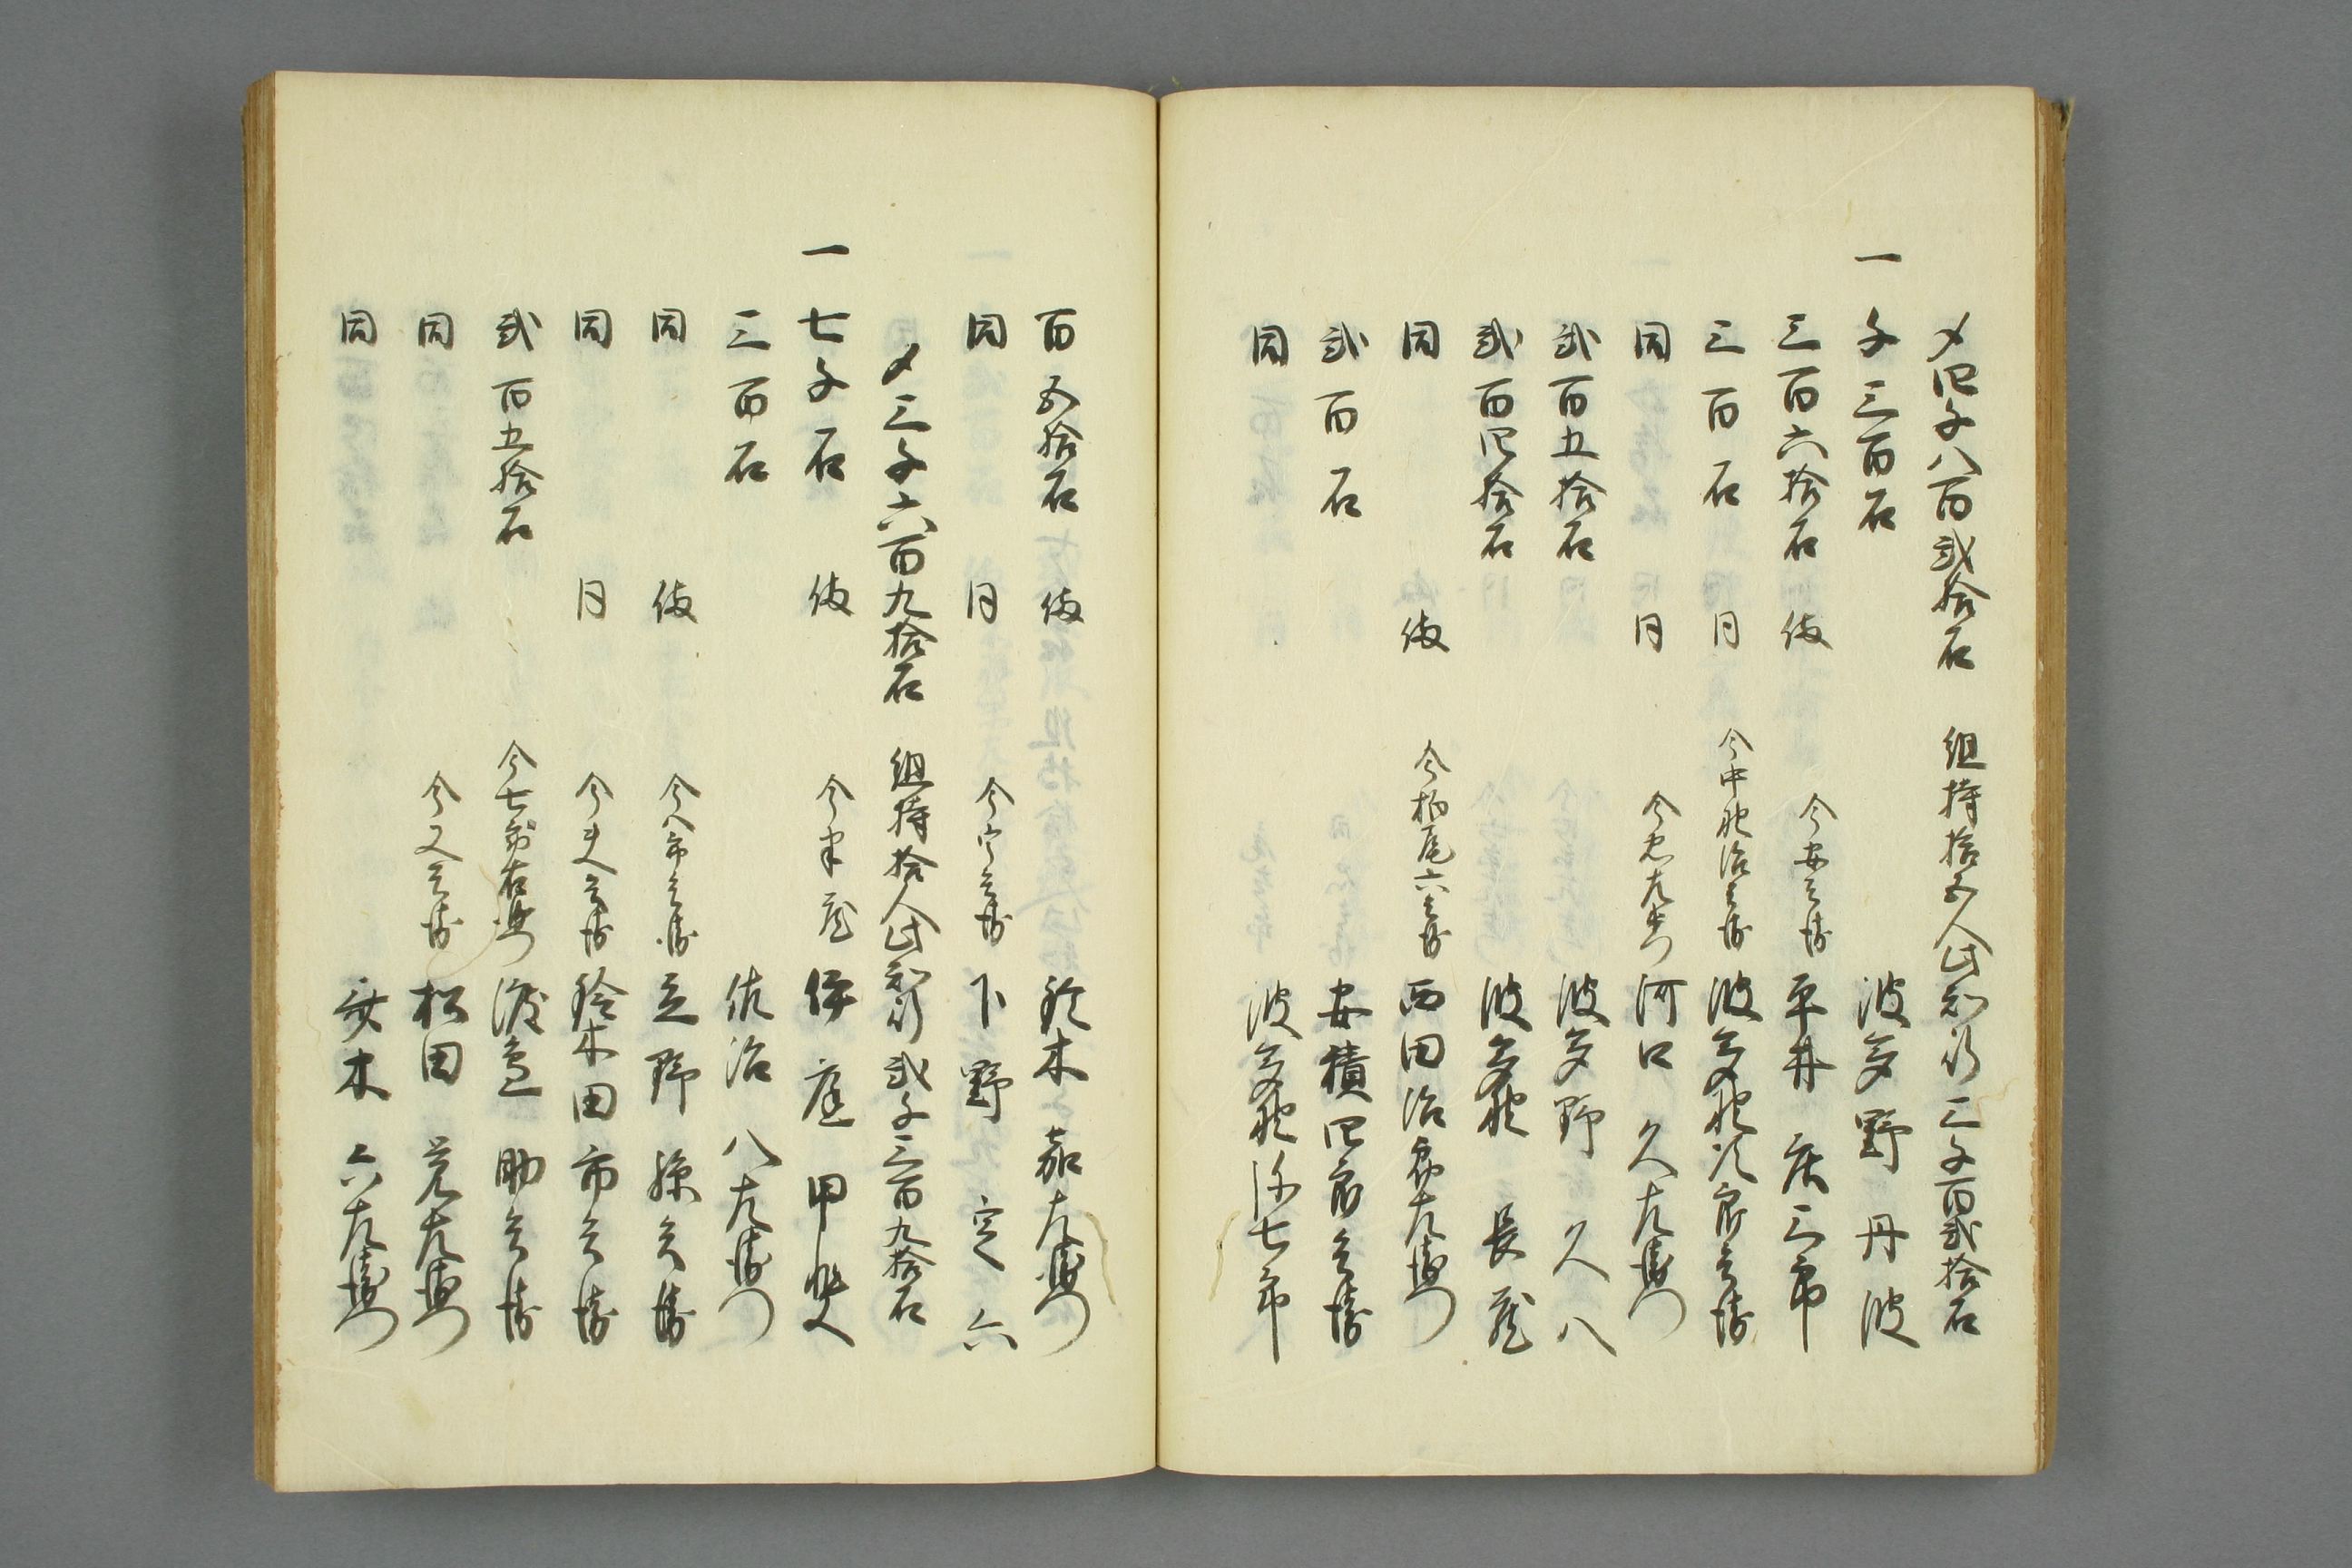 〆四千八百弐拾石 組持拾五人此知行三千百弐拾石
一 千三百石 波多野丹波
三百六拾石 後 今安兵衛 平井庄三郎
三百石 同 今中牧治兵衛 波多野次郎兵衛
同 同 今忠左衛門 河口久左衛門
弐百五拾石 波多野久八
弐百四拾石 波多野長蔵
同 後 今柏尾六兵衛 西田治郎左衛門
弐百石 安積四郎兵衛
同 波多野弥七郎
百五拾石 後 鈴木嘉左衛門
同 同 下野定六
〆三千六百九拾石 組持拾人此知行弐千三百九拾石
一 七千石 後 伊庭甲斐
三百石 佐治八左衛門
同 後 今八郎兵衛 立野孫兵衛
同 同 鈴木田市兵衛
弐百五拾石 今七郎右衛門 渡邊助兵衛
同 今又兵衛 松田
同 六左衛門